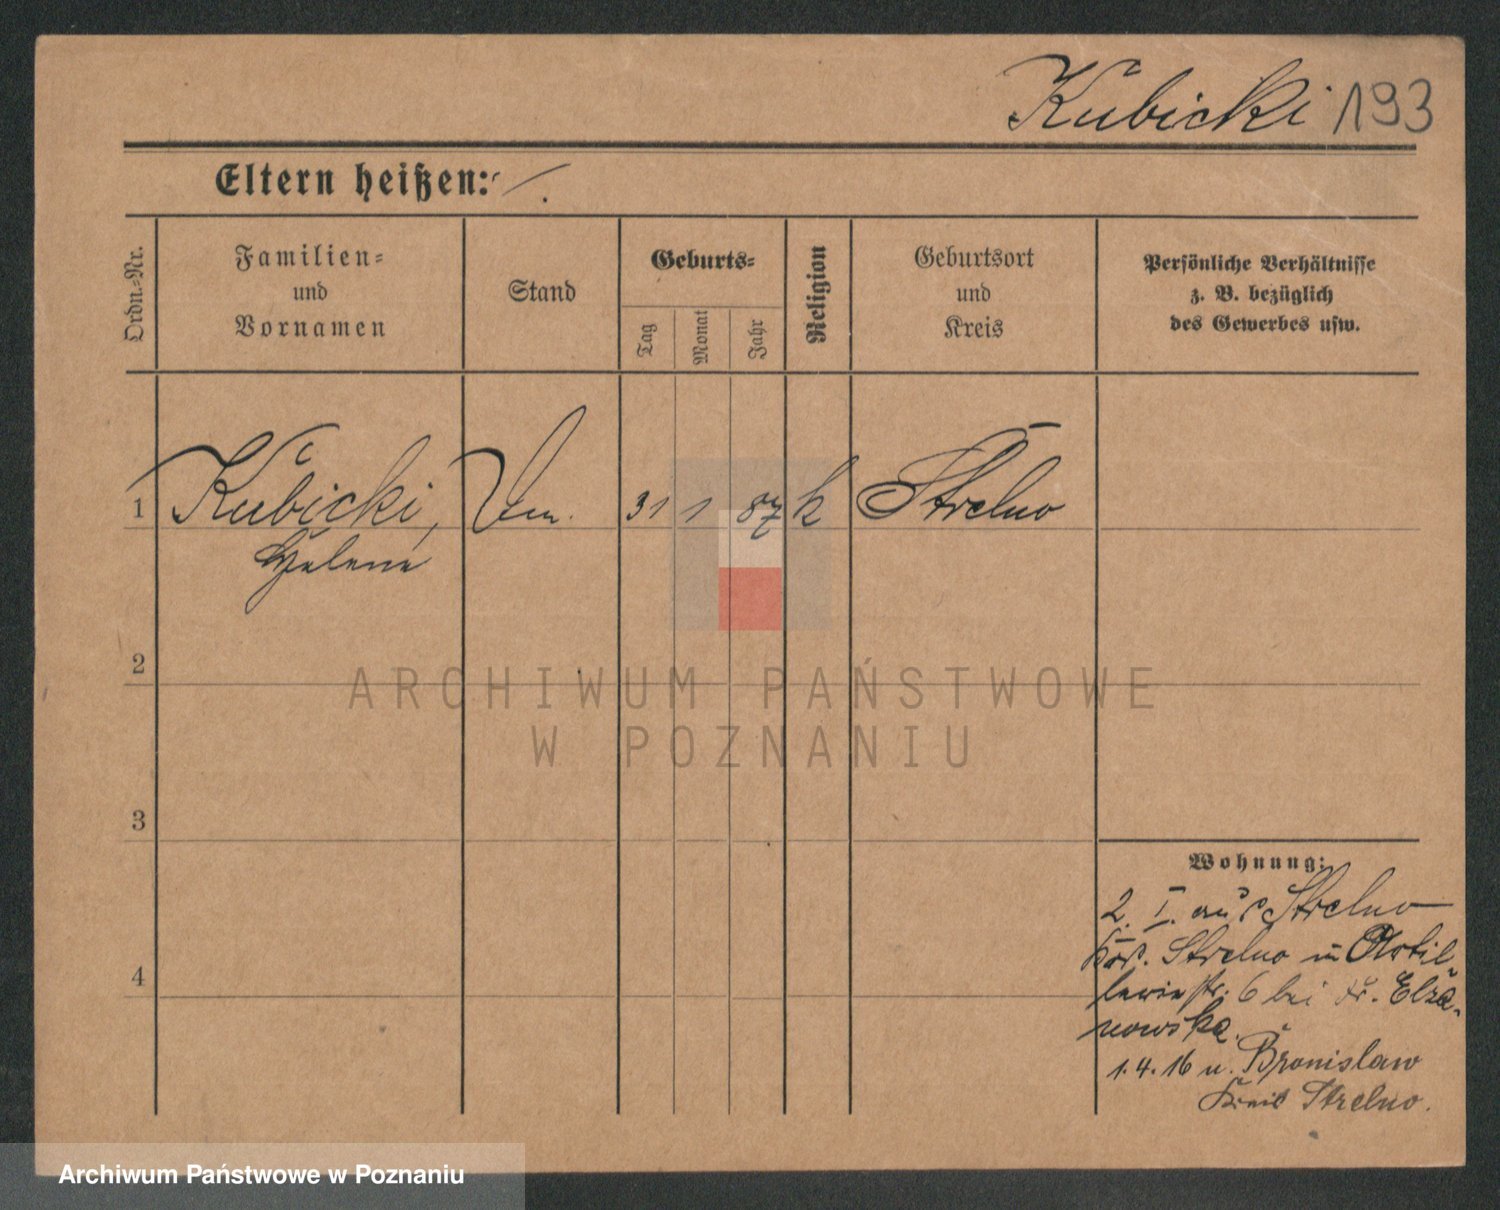 Kubicki 193
Eltern heißen: /.
Ordn.-Nr.
Familien=
und
Vornamen
Stand
Geburts=
Tag
Monat
Jahr
Religion
Geburtsort
und
Kreis
Persönliche Verhältnisse
z. B. bezüglich
des Gewerbes usw.
1 Kubicki, 31 1 87 k Strelno
Helene
2
ARCHIWUM PAŃSTWOWE
W POZNANIU
3
Wohnung:
2. I. aus Strelno
Krs. Strelno in Artil
leriestr. 6 bei Fr. Elza-
nowska.
4
1.4.16 n. Bronislaw
Kreis Strelno.
Archiwum Państwowe w Poznaniu